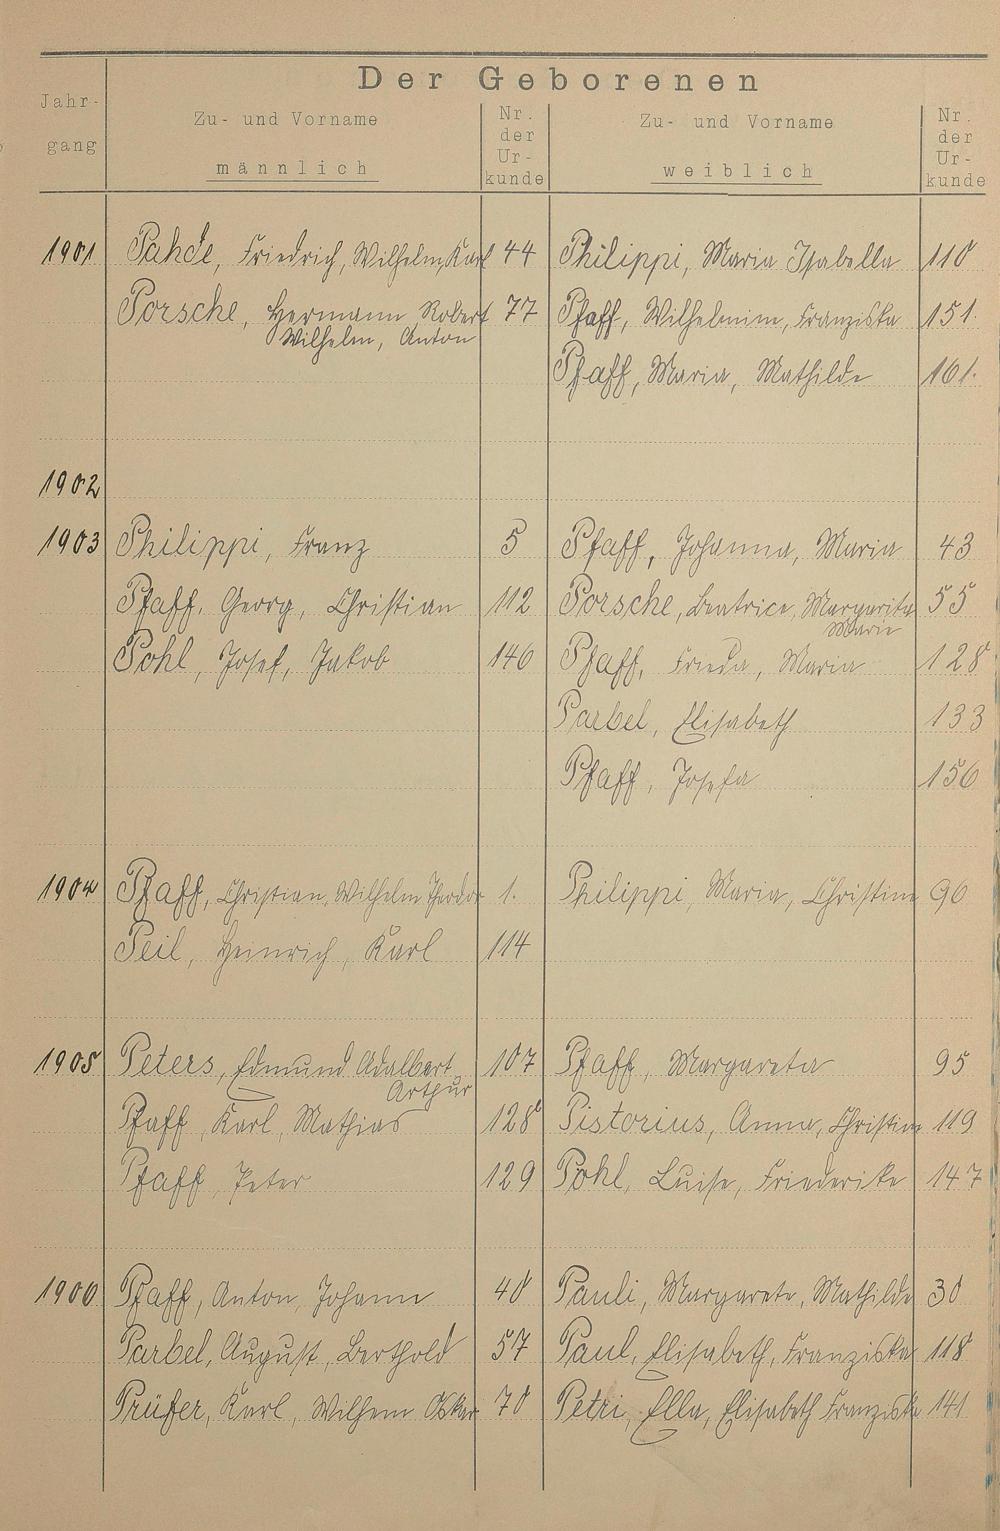 Der Geborenen
Jahr-
gang
Zu- und Vorname
männlich
Nr.
der
Ur-
kunde
Zu- und Vorname
weiblich
Nr.
der
Ur-
kunde
1901 Pahde, Friedrich, Wilhelm, Karl 44 Philippi, Maria Isabella 110
Porsche, Hermann Robert 77 Pfaff, Wilhelmine, Franziska 151.
Wilhelm, Anton
Pfaff, Maria, Mathilde 161.
1902
1903 Philippi, Franz 5 Pfaff, Johanna, Maria 43
Pfaff, Georg, Christian 112 Porsche, Beatrice, Margarita 55
Marie
Pohl, Josef, Jakob 146 Pfaff, Frieda, Maria 128
Parbel, Elisabeth 133
Pfaff, Josefa 156
1904 Pfaff, Christian, Wilhelm Theodor 1. Philippi, Maria, Christine 96
Peil, Heinrich, Karl 114
1905 Peters, Edmund Adalbert 107 Pfaff, Margareta 95
Arthur
Pfaff, Karl, Mathias 128 Pistorius, Anna, Christina 119
Pfaff, Peter 129 Pohl, Luise, Friederike 147
1906 Pfaff, Anton, Johann 40 Pauli, Margarete, Mathilde 30
Parbel, August, Berthold 57 Paul, Elisabeth, Franziska 118
Prüfer, Karl, Wilhem Oskar 70 Petri, Ella, Elisabeth Franziska 141